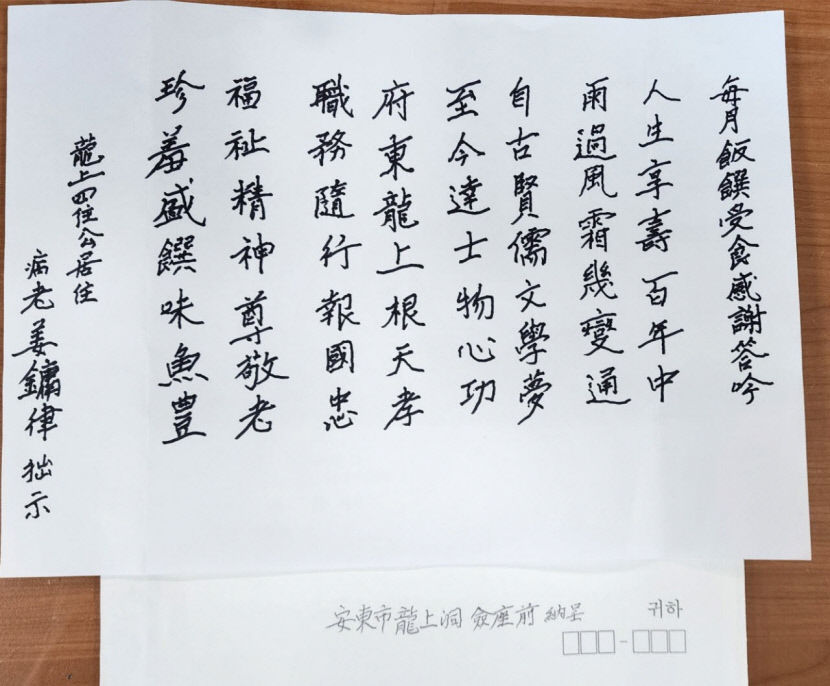 每月飯饌受食感謝答吟
人生享壽百年中
雨過風霜幾變通
自古賢儒文學夢
至今達士物心功
府東龍上根天孝
職務隨行報國忠
福祉精神尊敬老
珍羞盛饌味魚豊
龍上四住公居住
病老姜鏞律拙示
安東市龍上洞 座前 納呈 귀하